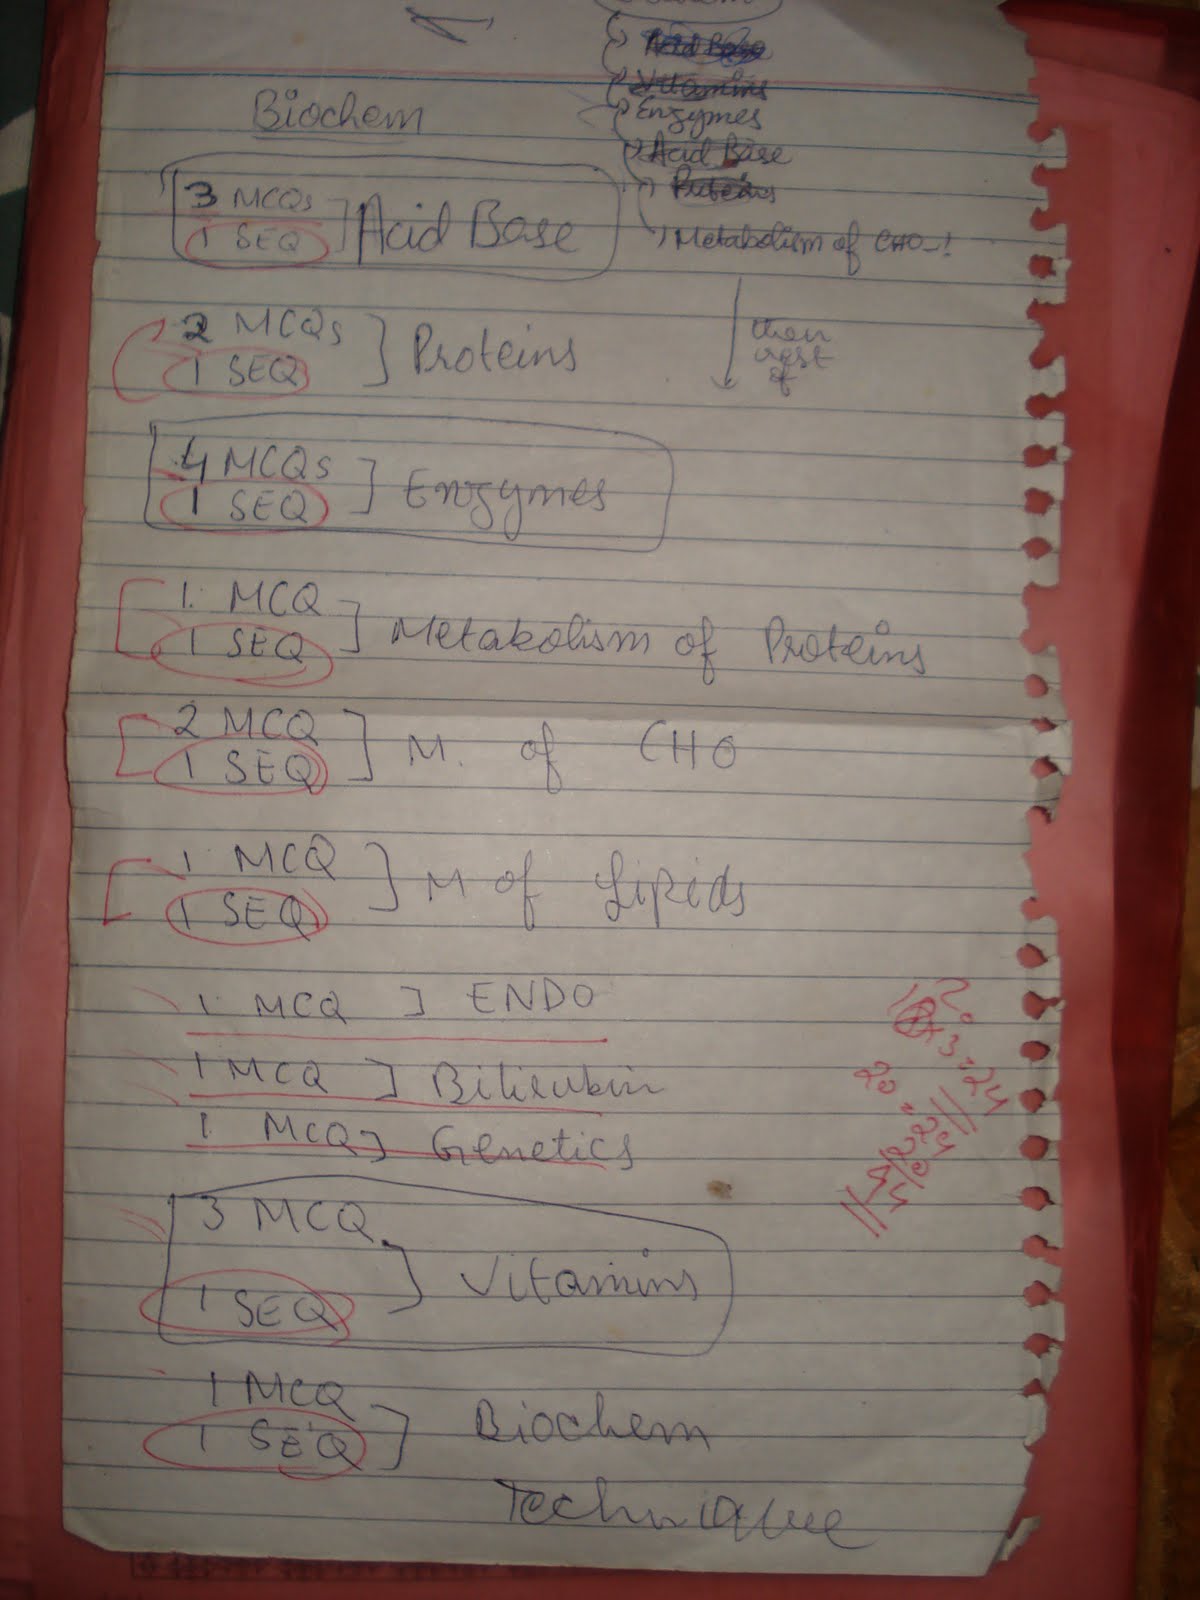 Acid Base
Vitamins
Enzymes
Acid Base
Proteins
Metabolism of CHO-!
then
rest
of
Biochem
3 MCQs
1 SEQ
Acid Base
2 MCQs
1 SEQ
Proteins
4 MCQs
1 SEQ
Enzymes
1. MCQ
1 SEQ
Metabolism of Proteins
2 MCQ
1 SEQ
M. of CHO
1 MCQ
1 SEQ
M of Lipids
1 MCQ ] ENDO
1 MCQ ] Bilirubin
1 MCQ ] Genetics
3 MCQ
1 SEQ
Vitamins
1 MCQ
1 SEQ
Biochem
Technique